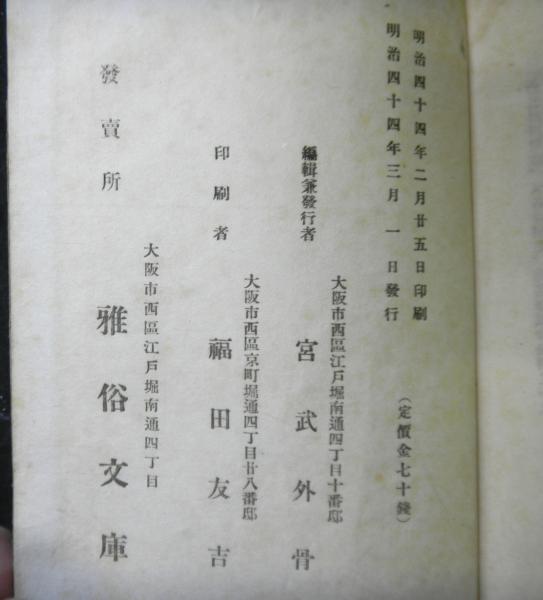 明治四十四年二月廿五日印刷
明治四十四年三月一日發行
(定價金七十錢)
大阪市西區江戸堀南通四丁目十番邸
編輯兼發行者 宮武外骨
大阪市西區京町堀通四丁目廿八番邸
印刷者 福田友吉
大阪市西區江戸堀南通四丁目
發賣所 雅俗文庫